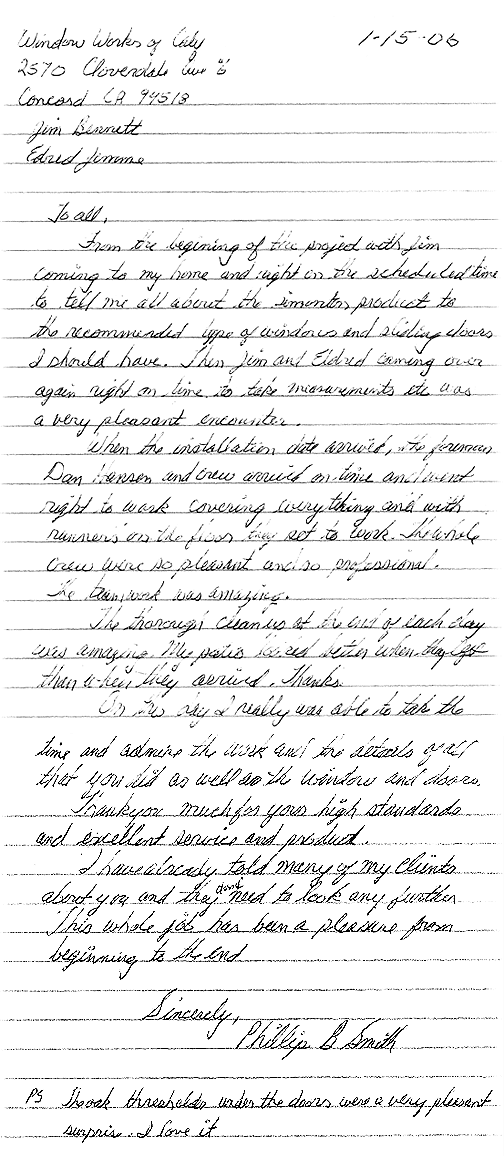 Window Works of Caly
1-15-06
2570 Cloverdale Ave
Concord CA 94518
Jim Bennett
Edred Jimme
To all,
From the begining of the project with Jim
coming to my home and right on the scheduled time
to tell me all about the simonton product to
the recommended type of windows and sliding doors
I should have. Then Jim and Eldred coming over
again right on time to take measurements etc was
a very pleasant encounter.
When the installation date arrived, the foreman
Dan Hansen and crew arrived on time and went
right to work covering everything and with
runners on the floor they set to work. The whole
crew were so pleasant and so professional.
The teamwork was amazing.
The thorough clean up at the end of each day
was amazing. My patio looked better when they left
than when they arrived. Thanks.
On this day I really was able to take the
time and admire the work and the details of all
that you did as well as the window and doors.
Thank you much for your high standards
and excellent service and product.
I have already told many of my clients
about you and they dont need to look any further
This whole job has been a pleasure from
beginning to the end
Sincerely,
Phillip B Smith
PS The oak thresholds under the doors were a very pleasant
surpris. I love it